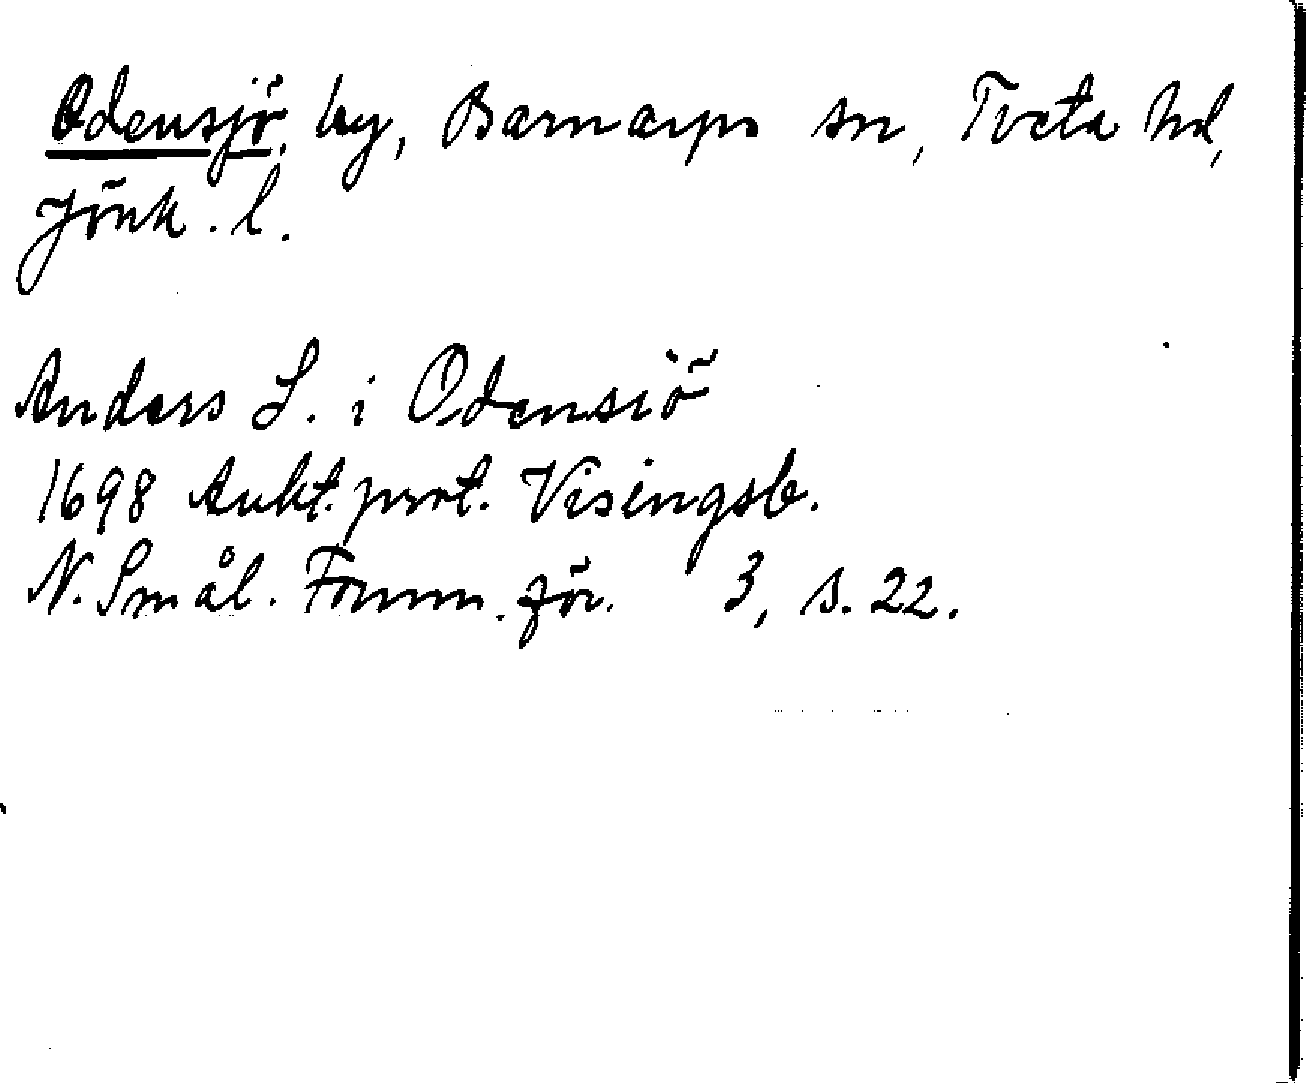 Odensjö, by, Barnarps sn, Tveta hd,
Jönk. l.
Anders L. i Odensiö
1698 Aukt. prot. Visingsb.
N. Smål. Fornm. för. 3, s. 22.